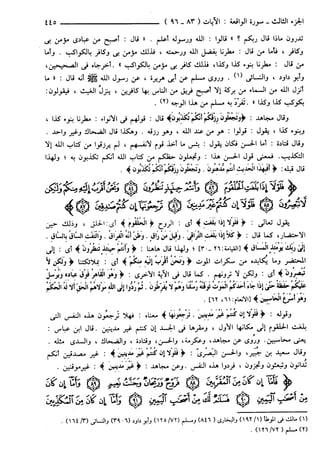 الجزء الثالث - سورة الواقعة : الآيات ( ٨٣ - ٩٦ ) ٤٤٥
تدرون ماذا قال ربكم ؟ » قالوا : الله ورسوله أعلم . « قال : أصبح من عبادي مؤمن بي
وكافر ، فأما من قال : مطرنا بفضل الله ورحمته ، فذلك مؤمن بي وكافر بالكواكب . وأما
من قال : مطرنا بنوء كذا وكذا، فذلك كافر بي مؤمن بالكواكب » . أخرجاه في الصحيحين،
وأبو داود ، والنسائي (١) . وروى مسلم عن أبي هريرة ، عن رسول الله ﷺ أنه قال : « ما
أنزل الله من السماء من بركة إلا أصبح فريق من الناس بها كافرين ، ينزل الغيث ، فيقولون:
بكوكب كذا وكذا » . تفرّد به مسلم من هذا الوجه (٢) .
وقال مجاهد : ﴿ وَتَجْعَلُونَ رِزْقَكُمْ أَنَّكُمْ تُكَذِّبُونَ ﴾ قال : قولهم في الأنواء : مطرنا بنوء كذا
وبنوء كذا ، يقول : قولوا : هو من عند الله ، وهو رزقه . وهكذا قال الضحاك وغير واحد .
وقال قتادة : أما الحسن فكان يقول : بئس ما أخذ قوم لأنفسهم ، لم يرزقوا من كتاب الله إلا
التكذيب. فمعنى قول الحسن هذا : وتجعلون حظكم من كتاب الله أنكم تكذبون به ؛ ولهذا
قال قبله : ﴿ أَفَبِهَٰذَا الْحَدِيثِ أَنتُم مُّدْهِنُونَ . وَتَجْعَلُونَ رِزْقَكُمْ أَنَّكُمْ تُكَذِّبُونَ ﴾ .
﴿ فَلَوْلَا إِذَا بَلَغَتِ الْحُلْقُومَ ﴿٨٣﴾ وَأَنتُمْ حِينَئِذٍ تَنظُرُونَ ﴿٨٤﴾ وَنَحْنُ أَقْرَبُ إِلَيْهِ مِنكُمْ وَلَٰكِن
لَّا تُبْصِرُونَ ﴿٨٥﴾ فَلَوْلَا إِن كُنتُمْ غَيْرَ مَدِينِينَ ﴿٨٦﴾ تَرْجِعُونَهَا إِن كُنتُمْ صَادِقِينَ ﴿٨٧﴾ ﴾
يقول تعالى : ﴿ فَلَوْلَا إِذَا بَلَغَتِ ﴾ أي : الروح ﴿ الْحُلْقُومَ ﴾ أي : الحلق ، وذلك حين
الاحتضار، كما قال : ﴿ كَلَّا إِذَا بَلَغَتِ التَّرَاقِيَ . وَقِيلَ مَنْ رَاقٍ . وَظَنَّ أَنَّهُ الْفِرَاقُ . وَالْتَفَّتِ السَّاقُ بِالسَّاقِ .
إِلَىٰ رَبِّكَ يَوْمَئِذٍ الْمَسَاقُ ﴾ [القيامة : ٢٦ - ٣٠] ؛ ولهذا قال هاهنا : ﴿ وَأَنتُمْ حِينَئِذٍ تَنظُرُونَ ﴾ أي : إلى
المحتضر وما يكابده من سكرات الموت ﴿ وَنَحْنُ أَقْرَبُ إِلَيْهِ مِنكُمْ ﴾ أي : بملائكتنا ﴿ وَلَٰكِن لَّا
تُبْصِرُونَ ﴾ أي : ولكن لا ترونهم . كما قال في الآية الأخرى : ﴿ وَهُوَ الْقَاهِرُ فَوْقَ عِبَادِهِ وَيُرْسِلُ
عَلَيْكُمْ حَفَظَةً حَتَّىٰ إِذَا جَاءَ أَحَدَكُمُ الْمَوْتُ تَوَفَّتْهُ رُسُلُنَا وَهُمْ لَا يُفَرِّطُونَ . ثُمَّ رُدُّوا إِلَى اللَّهِ مَوْلَاهُمُ الْحَقِّ أَلَا لَهُ الْحُكْمُ
وَهُوَ أَسْرَعُ الْحَاسِبِينَ ﴾ [الأنعام : ٦١ ، ٦٢] .
وقوله : ﴿ فَلَوْلَا إِن كُنتُمْ غَيْرَ مَدِينِينَ . تَرْجِعُونَهَا ﴾ معناه : فهلا ترجعون هذه النفس التي
بلغت الحلقوم إلى مكانها الأول ، ومقرها في الجسد إن كنتم غير مدينين . قال ابن عباس :
يعني محاسبين. وروي عن مجاهد، وعكرمة، والحسن، وقتادة ، والضحاك ، والسدي مثله .
وقال سعيد بن جبير، والحسن البصري : ﴿ فَلَوْلَا إِن كُنتُمْ غَيْرَ مَدِينِينَ ﴾ : غير مصدقين أنكم
تدانون وتبعثون وتجزون ، فردوا هذه النفس. وعن مجاهد : ﴿ غَيْرَ مَدِينِينَ ﴾ : غير موقنين .
﴿ فَأَمَّا إِن كَانَ مِنَ الْمُقَرَّبِينَ ﴿٨٨﴾ فَرَوْحٌ وَرَيْحَانٌ وَجَنَّتُ نَعِيمٍ ﴿٨٩﴾ وَأَمَّا إِن كَانَ
مِنْ أَصْحَابِ الْيَمِينِ ﴿٩٠﴾ فَسَلَامٌ لَّكَ مِنْ أَصْحَابِ الْيَمِينِ ﴿٩١﴾ وَأَمَّا إِن كَانَ مِنَ الْمُكَذِّبِينَ
(١) مالك في الموطأ (١/ ١٩٢) والبخاري (٨٤٦) ومسلم (٧١/ ١٢٥) وأبو داود (٣٩٠٦) والنسائي (٣/ ١٦٤) .
(٢) مسلم (٧٢/ ١٢٦) .